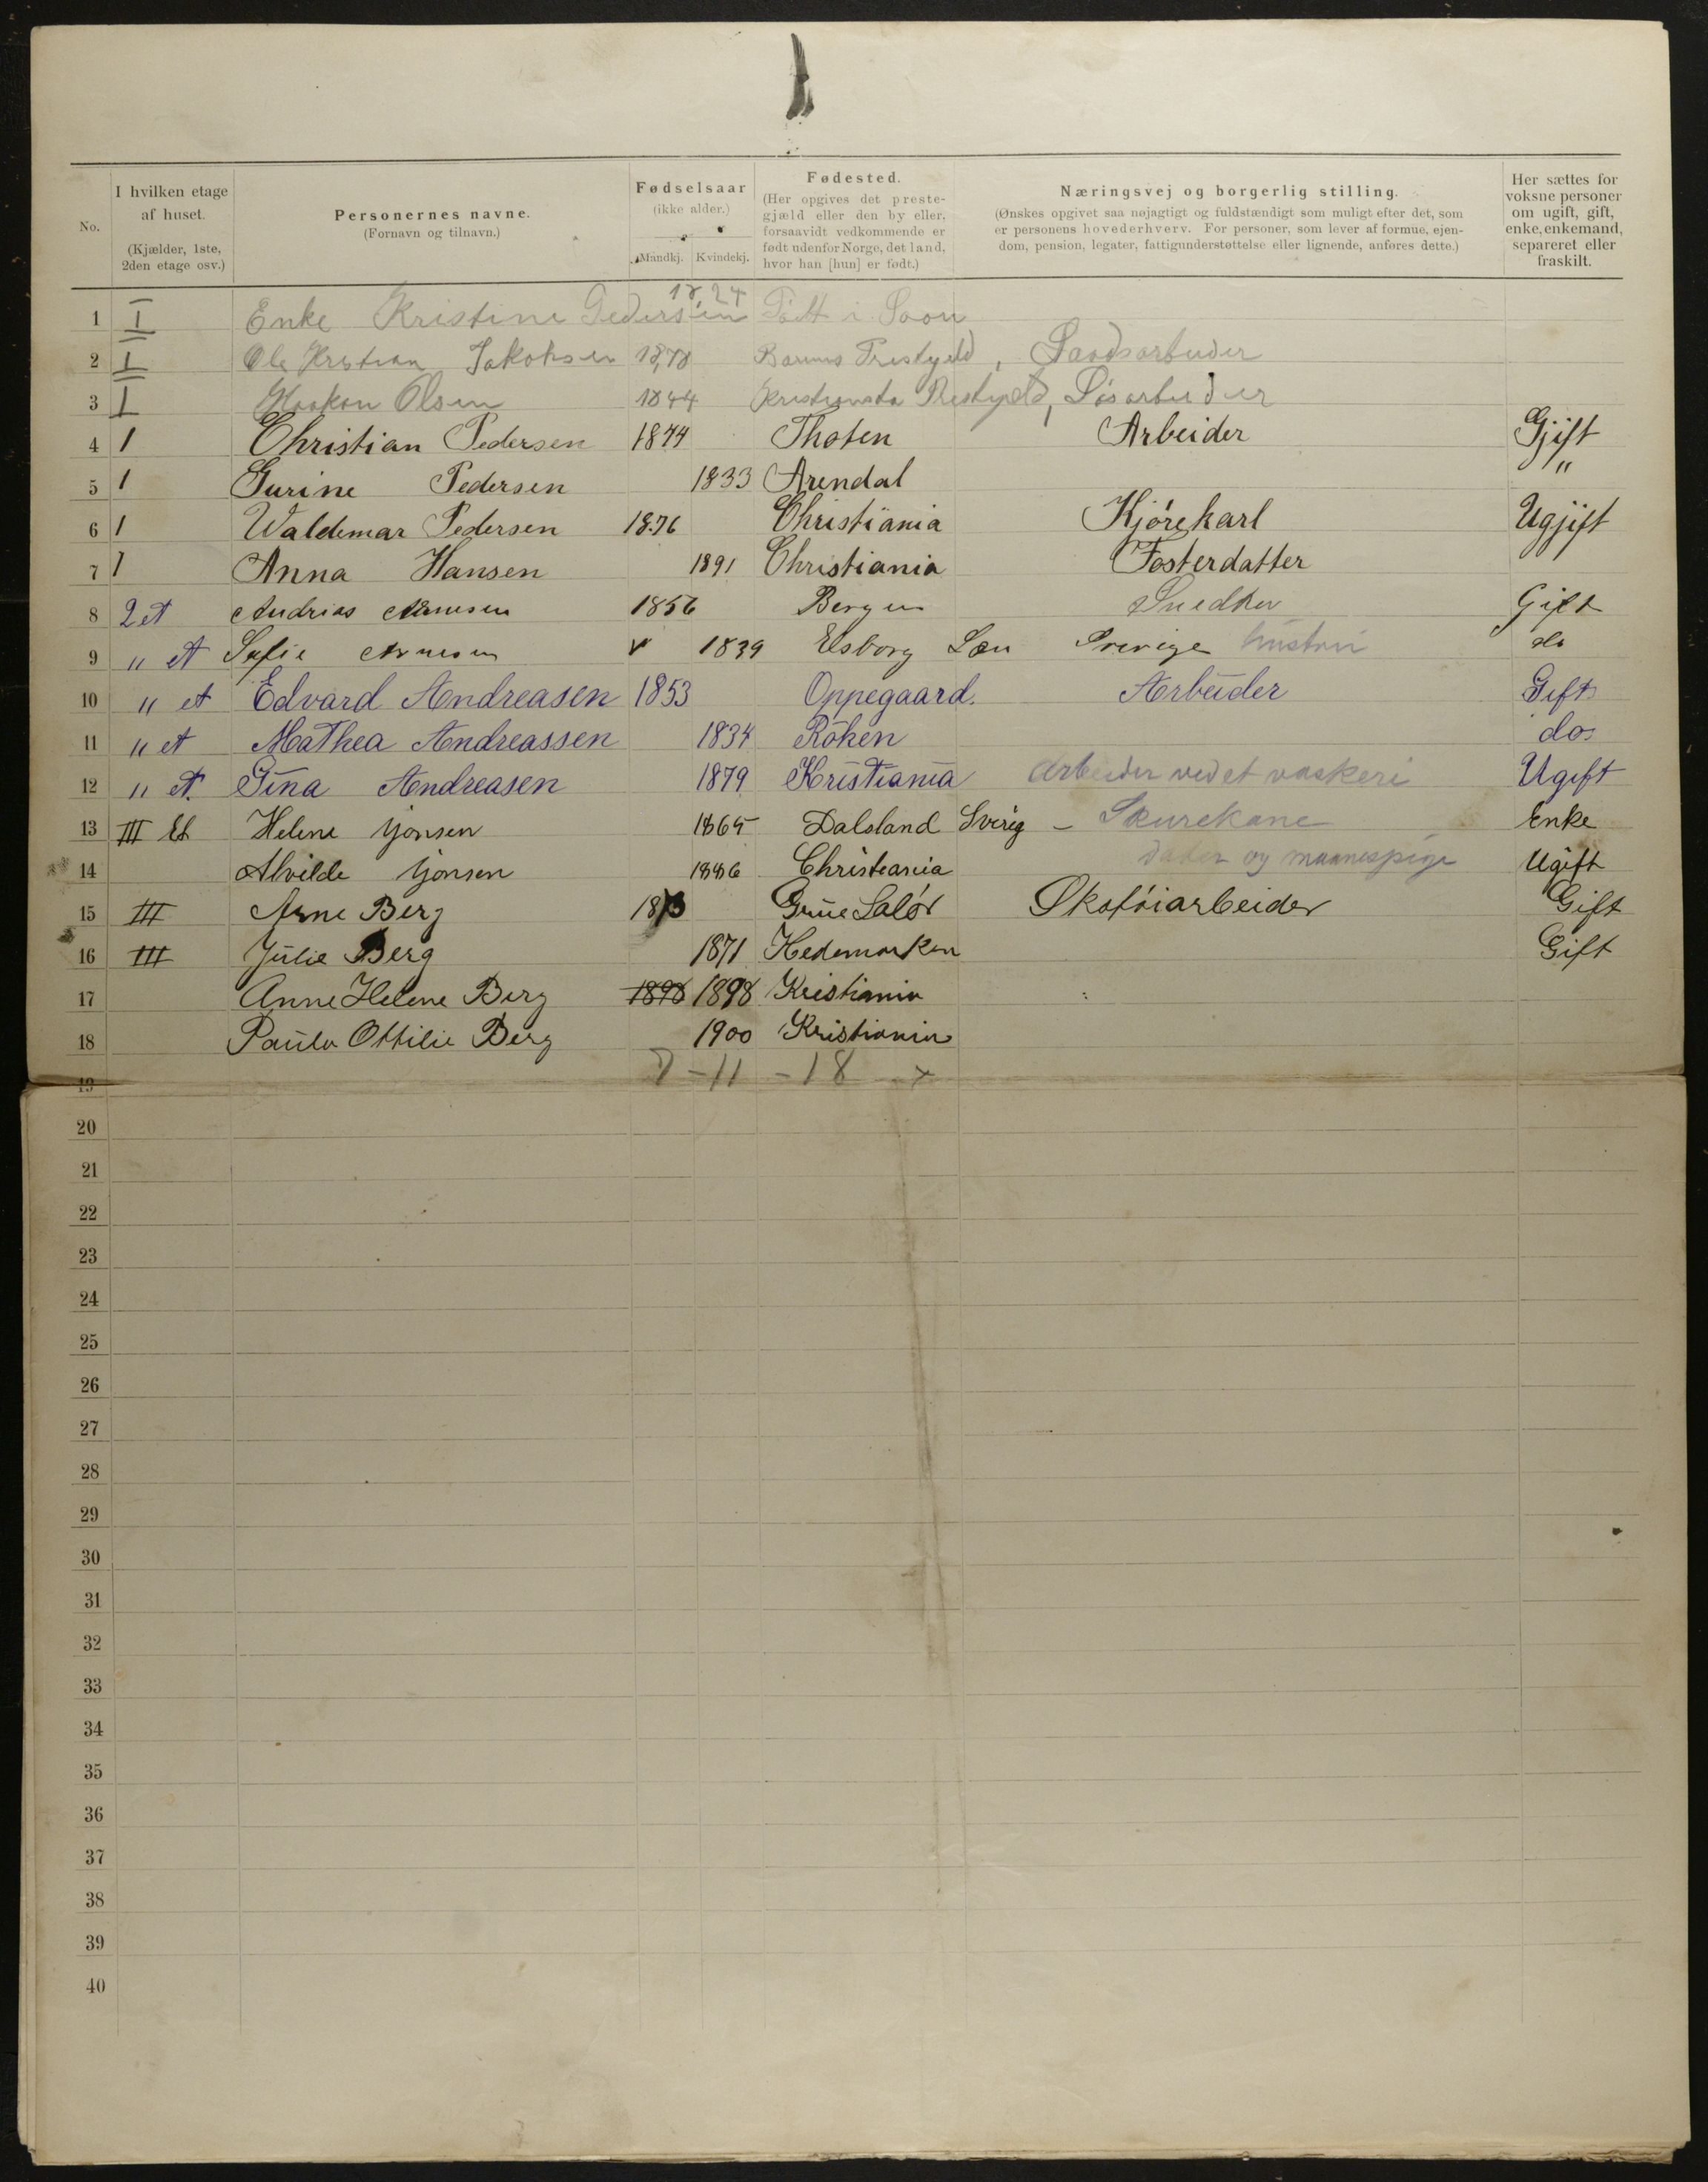 No.
I hvilken etage af huset.
(Kjælder, 1ste, 2den etage osv.)
Personernes navne.
(Fornavn og tilnavn.)
Fødselsaar
(ikke alder.)
Mandkj. Kvindekj.
Fødested.
(Her opgives det prestegjæld eller den by eller, forsaavidt vedkommende er født udenfor Norge, det land, hvor han [hun] er født.)
Næringsvej og borgerlig stilling.
(Ønskes opgivet saa nøjagtigt og fuldstændigt som muligt efter det, som er personens hovederhverv. For personer, som lever af formue, ejendom, pension, legater, fattigunderstøttelse eller lignende, anføres dette.)
Her sættes for voksne personer om ugift, gift, enke, enkemand, separeret eller fraskilt.
1 I Enke Kristine Pedersen 1824 Født i Soon
2 I Ole Kristian Jakobsen 1878 Barums Prestgjeld,
3 I Haakon Olsen 1844 Løsarbeider
4 1 Christian Pedersen 1844 Thoten Arbeider Gjift
5 1 Gurine Pedersen 1833 Arendal "
6 1 Waldemar Pedersen 1876 Christiania Kjørekarl Ugjift
7 1 Anna Hansen 1891 Christiania Fosterdatter
8 2 et Andrias Arnesen 1856 Bergen Snedker Gift
9 " et Sofie Arnesen 1839 Elsborg Læn Sverige hustru do
10 " et Edvard Andreasen 1853 Oppegaard. Arbeider Gift
11 " et Mathea Andreassen 1834 Röken do.
12 " et. Gina Andreasen 1879 Kristiania Arbeider ved et vaskeri Ugift
13 III Et Helene Jonsen 1865 Dalsland Sverig - Skurekone Enke
14 Alvilde Jonsen 1886 Christeania Ugift
15 III Arne Berg 1873 Grue Solør Skotøiarbeider Gift
16 III Julie Berg 1871 Hedemarken Gift
17 Anne Helene Berg 1898 1898 Kristiania
18 Paula Ottilie Berg 1900 Kristiania
19 7 - 11 - 18 x
20
21
22
23
24
25
26
27
28
29
30
31
32
33
34
35
36
37
38
39
40